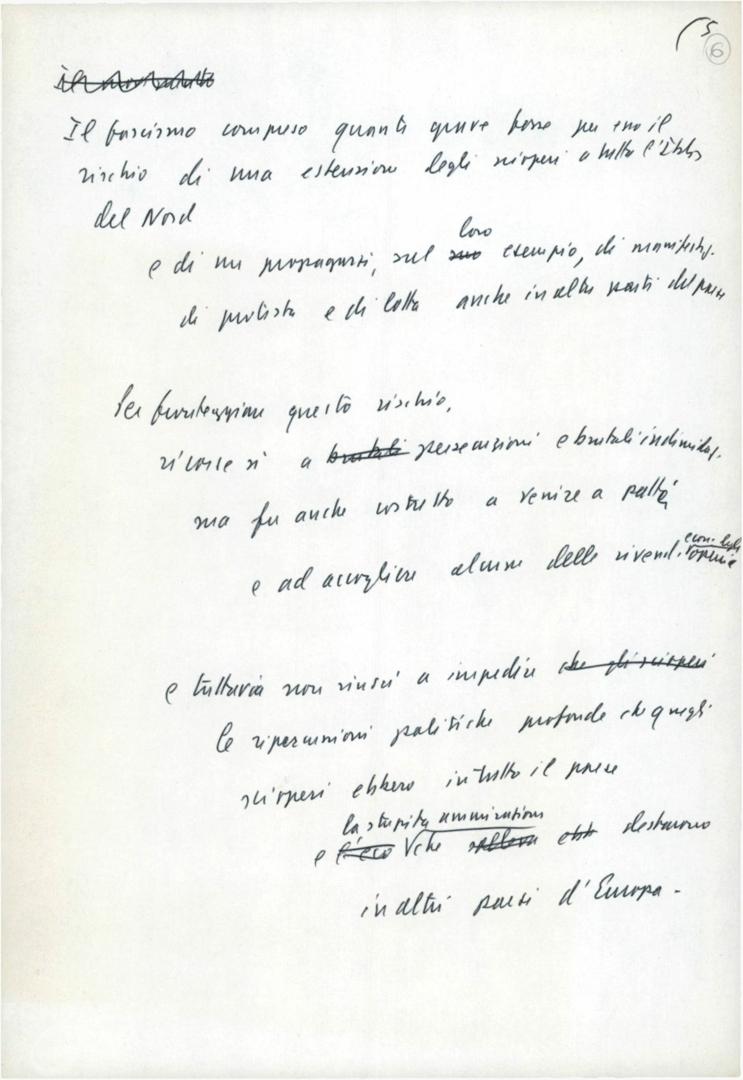 5
6
Il fascismo comprese quanto grave fosse per esso il
rischio di una estensione degli scioperi a tutta l'Italia
del Nord
loro
e di un propagarsi, sul suo esempio, di manifestaz.
di protesta e di lotta anche in altre parti del paese
Per fronteggiare questo rischio,
ricorse sì a brutali persecuzioni e brutali intimidaz.
ma fu anche costretto a venire a patti
e ad accogliere alcune delle rivend. econ. degli
operai
e tuttavia non riuscì a impedire che gli scioperi
le ripercussioni politiche profonde che quegli
scioperi ebbero in tutto il paese
la stupita ammirazione
e l'eco che destarono
in altri paesi d'Europa -